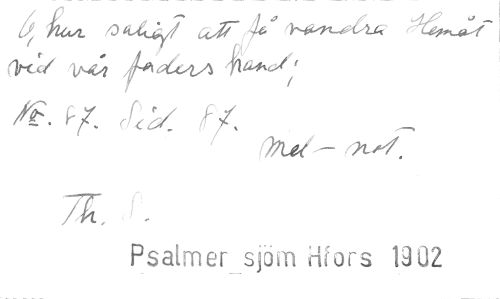 O, hur saligt att få vandra Hemåt
vid vår faders hand;
No. 87. Sid. 87.
Mel-not.
Th. S.
Psalmer sjöm Hfors 1902